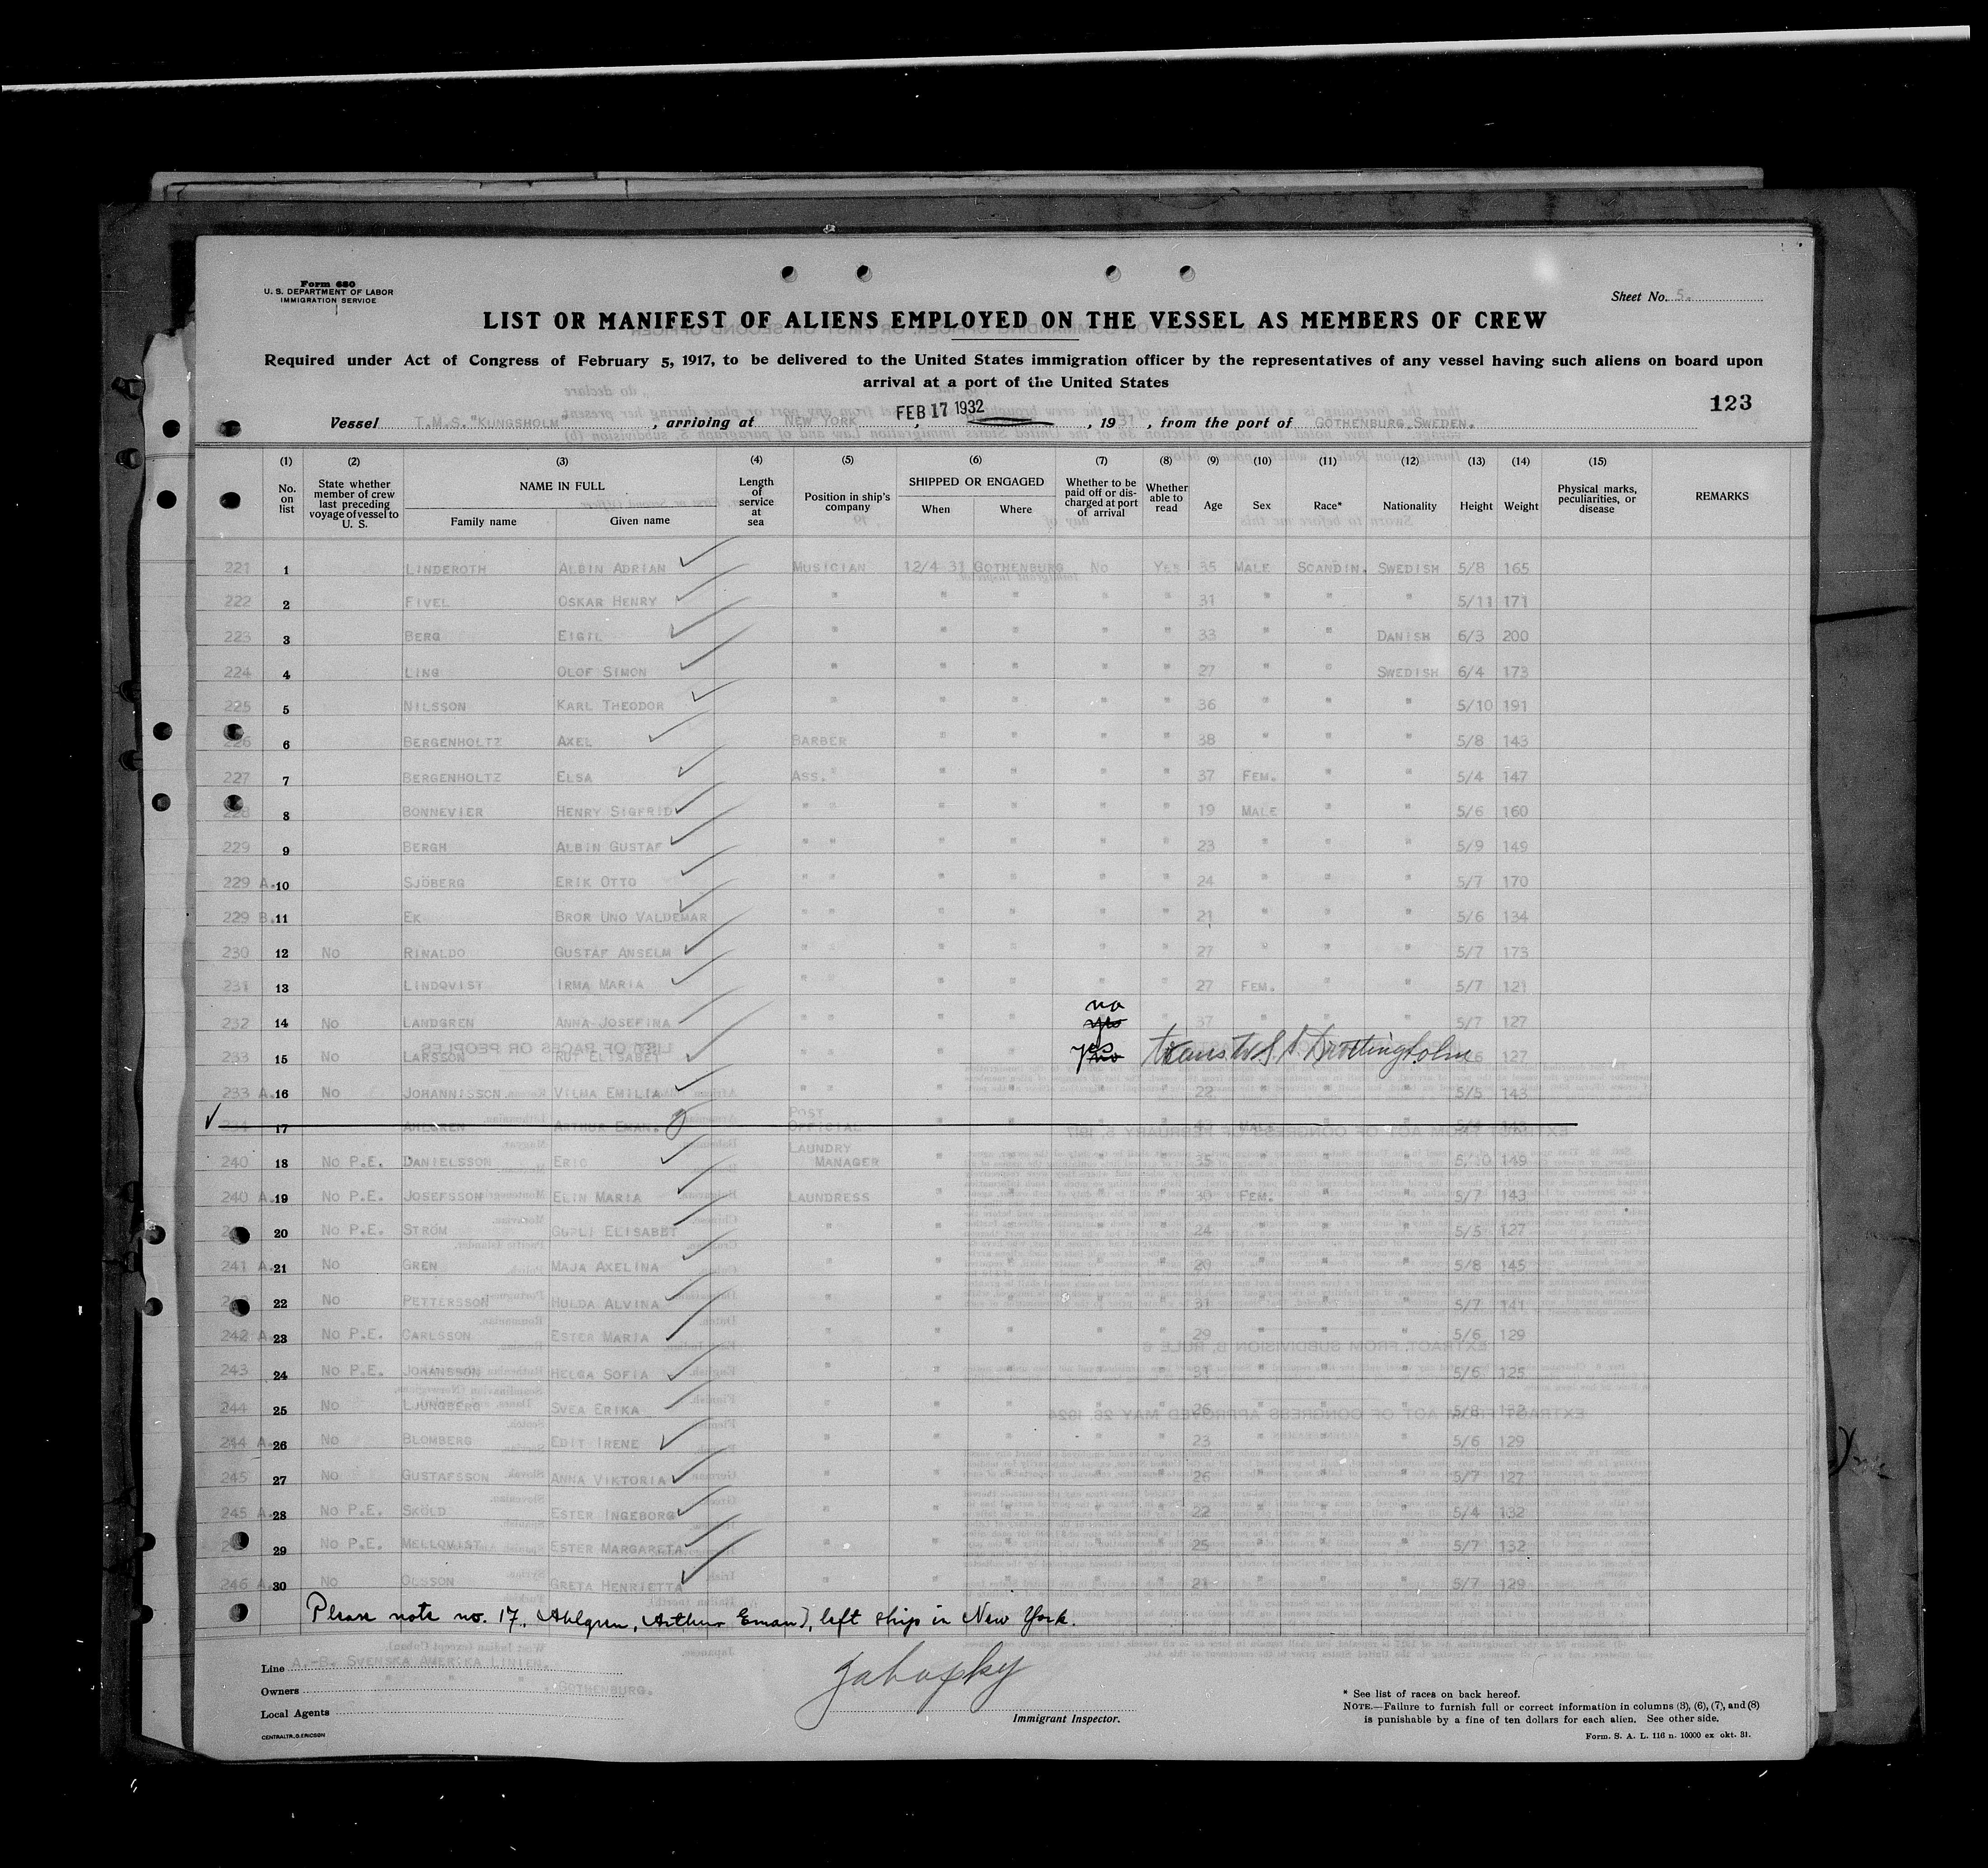 Form 680
U. S. DEPARTMENT OF LABOR
IMMIGRATION SERVICE
Sheet No. 5.
LIST OR MANIFEST OF ALIENS EMPLOYED ON THE VESSEL AS MEMBERS OF CREW
Required under Act of Congress of February 5, 1917, to be delivered to the United States immigration officer by the representatives of any vessel having such aliens on board upon
arrival at a port of the United States
123
FEB 17 1932
Vessel T.M.S. "KUNGSHOLM" , arriving at NEW YORK , , 1931 , from the port of GOTHENBURG SWEDEN.
(1) (2) (3) (4) (5) (6) (7) (8) (9) (10) (11) (12) (13) (14) (15)
No. on list State whether member of crew last preceding voyage of vessel to U. S. NAME IN FULL Family name Given name Length of service at sea Position in ship's company SHIPPED OR ENGAGED When Where Whether to be paid off or discharged at port of arrival Whether able to read Age Sex Race* Nationality Height Weight Physical marks, peculiarities, or disease REMARKS
221 1 LINDEROTH ALBIN ADRIAN MUSICIAN 12/4 31 GOTHENBURG NO YES 35 MALE SCANDIN. SWEDISH 5/8 165
222 2 FIVEL OSKAR HENRY " " " " " 31 " " " 5/11 171
223 3 BERG EIGIL " " " " " 33 " " DANISH 6/3 200
224 4 LING OLOF SIMON " " " " " 27 " " SWEDISH 6/4 173
225 5 NILSSON KARL THEODOR " " " " " 36 " " " 5/10 191
226 6 BERGENHOLTZ AXEL BARBER " " " " 38 " " " 5/8 143
227 7 BERGENHOLTZ ELSA ASS. " " " " " 37 FEM. " " 5/4 147
228 8 BONNEVIER HENRY SIGFRID " " " " " " 19 MALE " " 5/6 160
229 9 BERGH ALBIN GUSTAF " " " " " " 23 " " " 5/9 149
229 A. 10 SJÖBERG ERIK OTTO " " " " " " 24 " " " 5/7 170
229 B. 11 EK BROR UNO VALDEMAR " " " " " " 21 " " " 5/6 134
230 12 NO RINALDO GUSTAF ANSELM " " " " " " 27 " " " 5/7 173
231 13 LINDQVIST IRMA MARIA " " " " " " 27 FEM. " " 5/7 121
no
232 14 NO LANDGREN ANNA JOSEFINA " " " " yes " 37 " " " 5/7 127
233 15 NO LARSSON RUT ELISABET " " " " yes no trans to S S Drottningholm 127
233 A. 16 NO JOHANNISSON VILMA EMILIA " " " " " " 22 " " " 5/5 143
234 17 AHLGREN ARTHUR EMAN. POST OFFICIAL " " " " MALE " "
240 18 NO P.E. DANIELSSON ERIC LAUNDRY MANAGER " " " " 35 " " " 5/10 149
240 A. 19 NO P.E. JOSEFSSON ELIN MARIA LAUNDRESS " " " " 30 FEM. " " 5/7 143
20 NO P.E. STRÖM GURLI ELISABET " " " " " 24 " " " 5/5 127
241 A. 21 NO GREN MAJA AXELINA " " " " " 20 " " " 5/8 145
22 NO PETTERSSON HULDA ALVINA " " " " " 31 " " " 5/7 141
242 A. 23 NO P.E. CARLSSON ESTER MARIA " " " " " 29 " " " 5/6 129
243 24 NO P.E. JOHANSSON HELGA SOFIA " " " " " 31 " " " 5/6 125
244 25 NO LJUNGBERG SVEA ERIKA " " " " " 26 " " " 5/8 132
244 A. 26 NO BLOMBERG EDIT IRENE " " " " " 23 " " " 5/6 129
245 27 NO GUSTAFSSON ANNA VIKTORIA " " " " " 26 " " " 5/7 127
245 A. 28 NO P.E. SKÖLD ESTER INGEBORG " " " " " 22 " " " 5/4 132
29 NO P.E. MELLQVIST ESTER MARGARETA " " " " " 25 " " " 5/7 132
246 A. 30 NO OLSSON GRETA HENRIETTA " " " " " 21 " " " 5/7 129
Please note no. 17, Ahlgren, (Arthur Eman), left ship in New York.
Line A.-B. SVENSKA AMERIKA LINIEN.
Owners " " " , GOTHENBURG.
Local Agents
Immigrant Inspector.
* See list of races on back hereof.
NOTE.—Failure to furnish full or correct information in columns (3), (6), (7), and (8)
is punishable by a fine of ten dollars for each alien. See other side.
CENTRALTR. G. ERICSON
Form. S. A. L. 116 n. 10000 ex okt. 31.